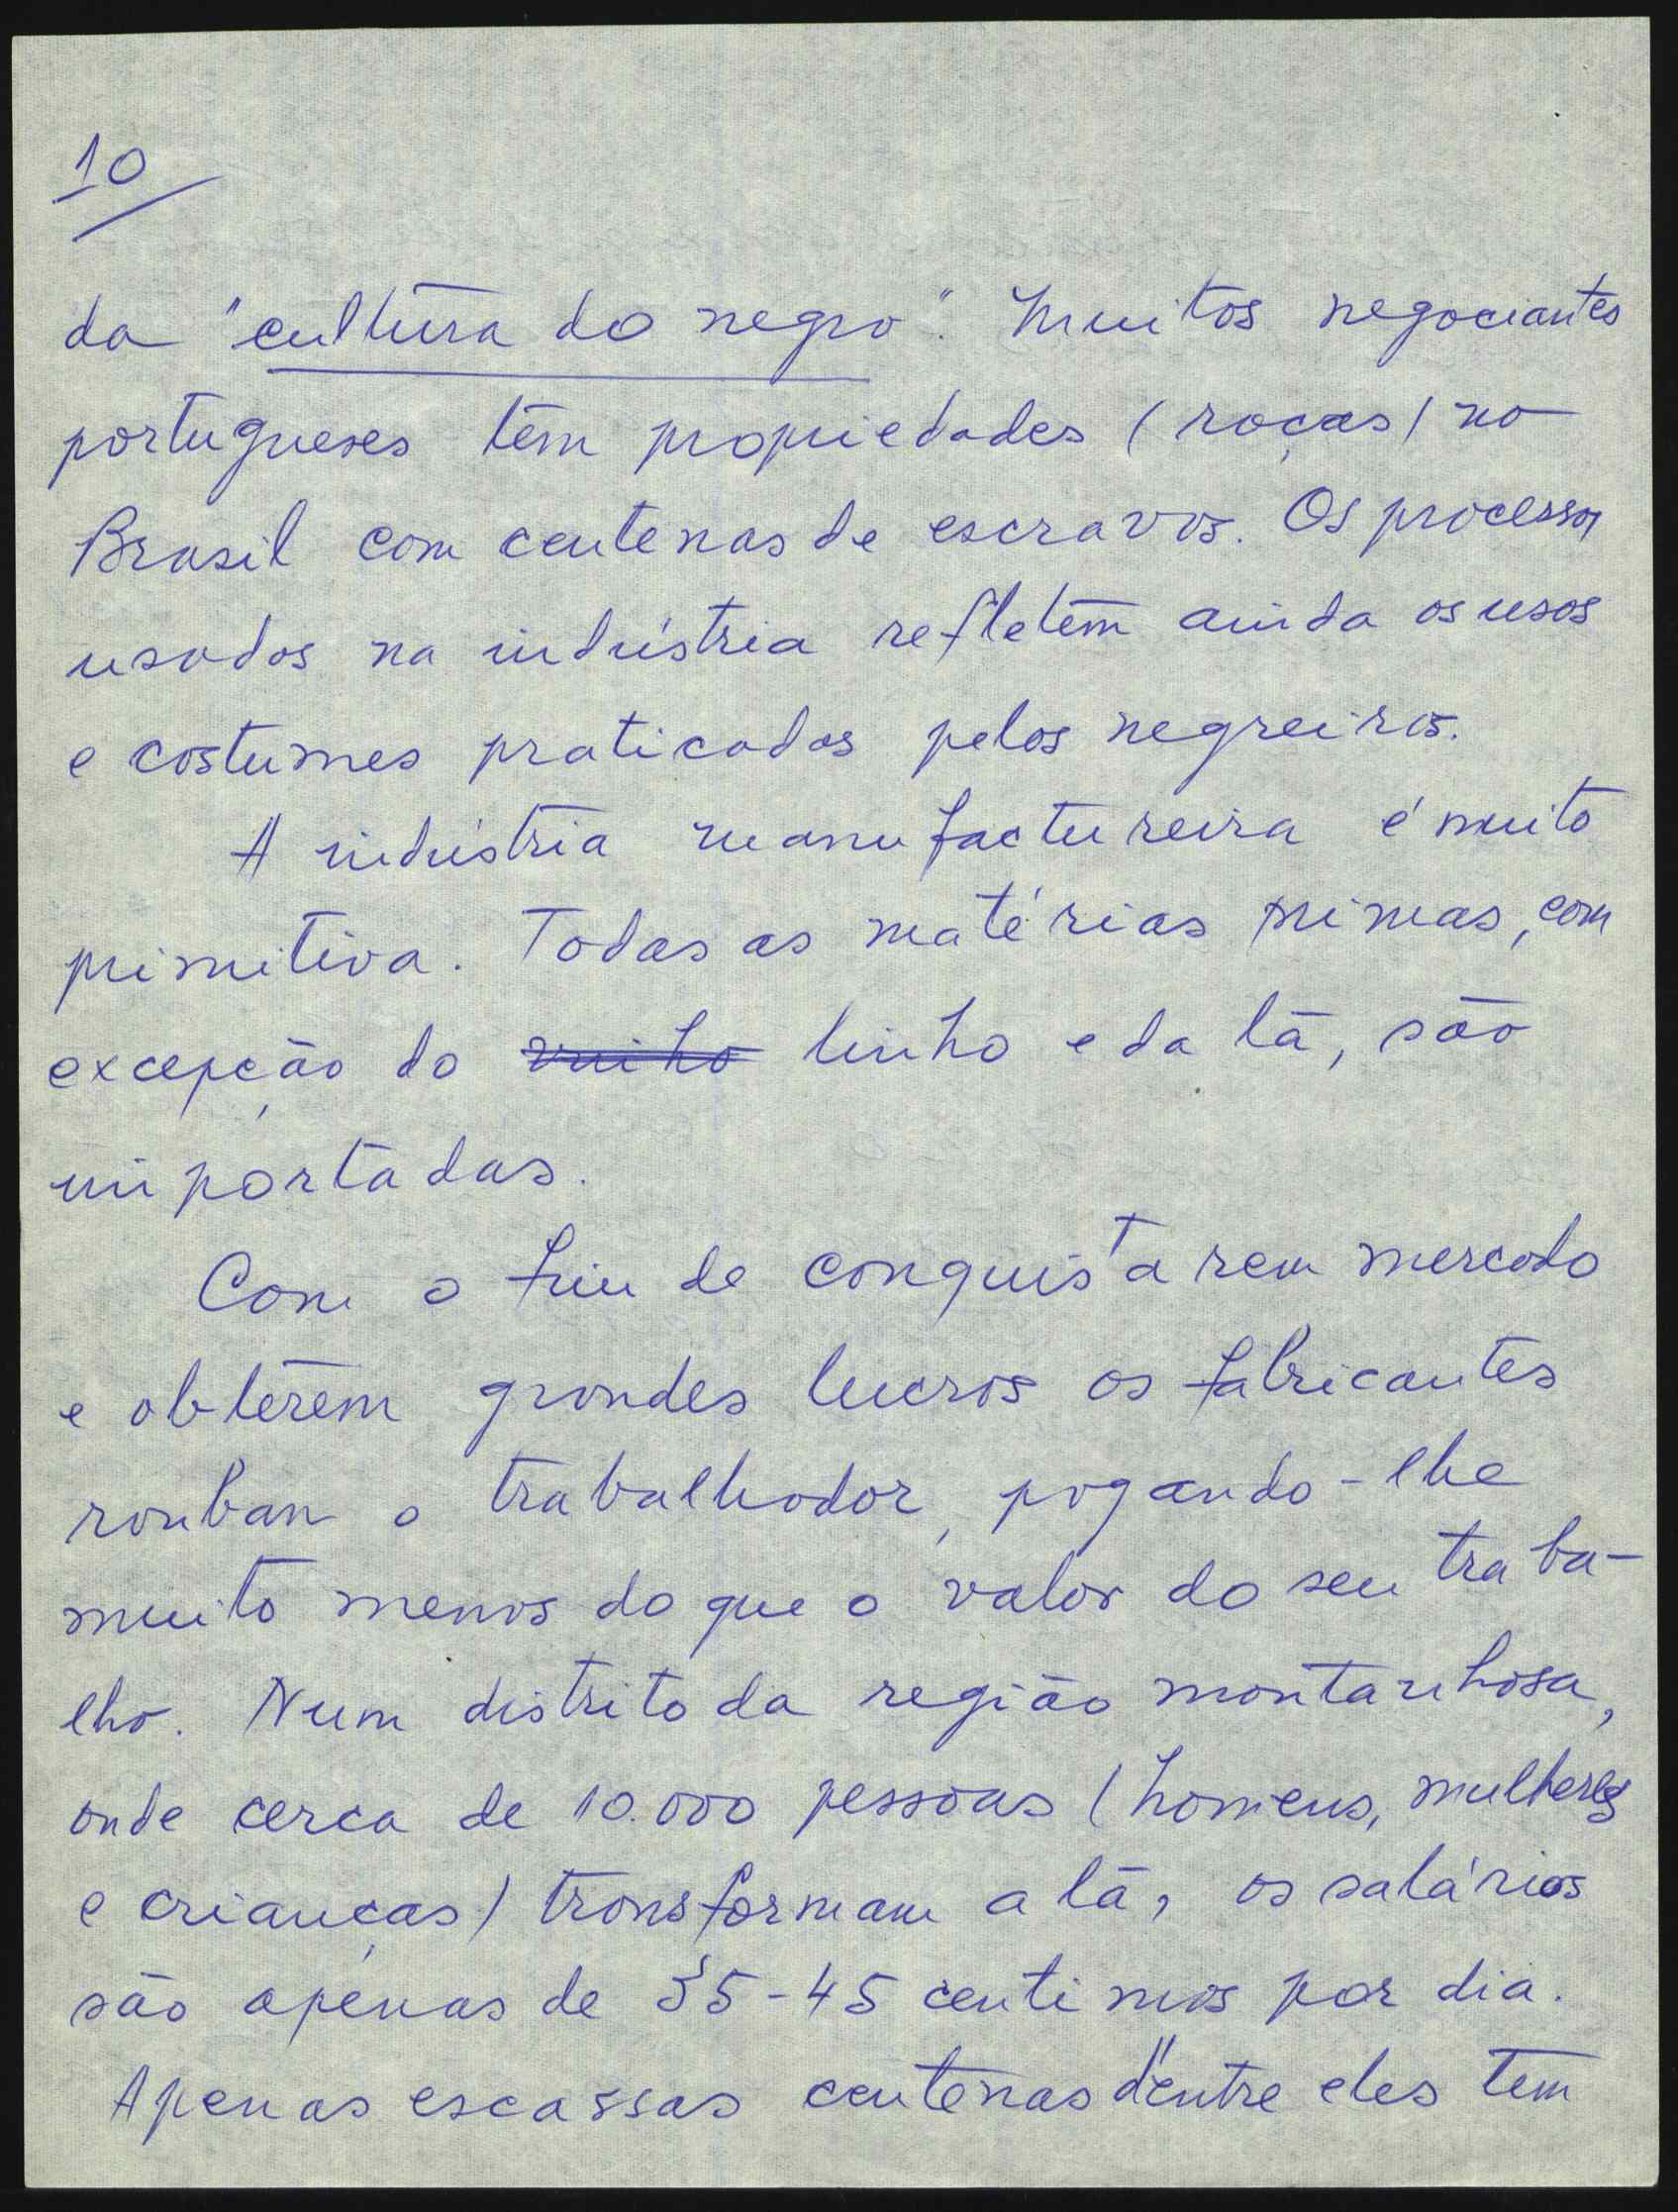 10
da "cultura do negro". Muitos negociantes
portugueses têm propriedades (roças) no
Brasil com centenas de escravos. Os processos
usados na indústria refletem ainda os usos
e costumes praticados pelos negreiros.
A indústria manufactureira é muito
primitiva. Todas as matérias primas, com
excepção do vinho linho e da lã, são
importadas.
Com o fim de conquistarem mercado
e obterem grandes lucros os fabricantes
roubam o trabalhador, pagando-lhe
muito menos do que o valor do seu traba-
lho. Num distrito da região montanhosa,
onde cerca de 10.000 pessoas (homens, mulheres
e crianças) transformam a lã, os salários
são apenas de 35-45 centimos por dia.
Apenas escassas centenas d'entre eles tem